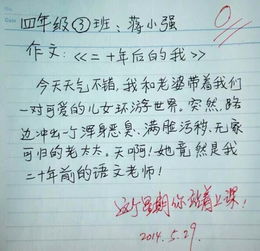 四年级③班：蒋小强
0
作文：《二十年后的我》
今天天气不错，我和老婆带着我们
一对可爱的儿女环游世界。突然，路
边冲出一个浑身恶臭、满脸污秽、无家
可归的老太太。天啊！她竟然是我
二十年前的语文老师！
这个星期你站着上课！
2014.5.29.